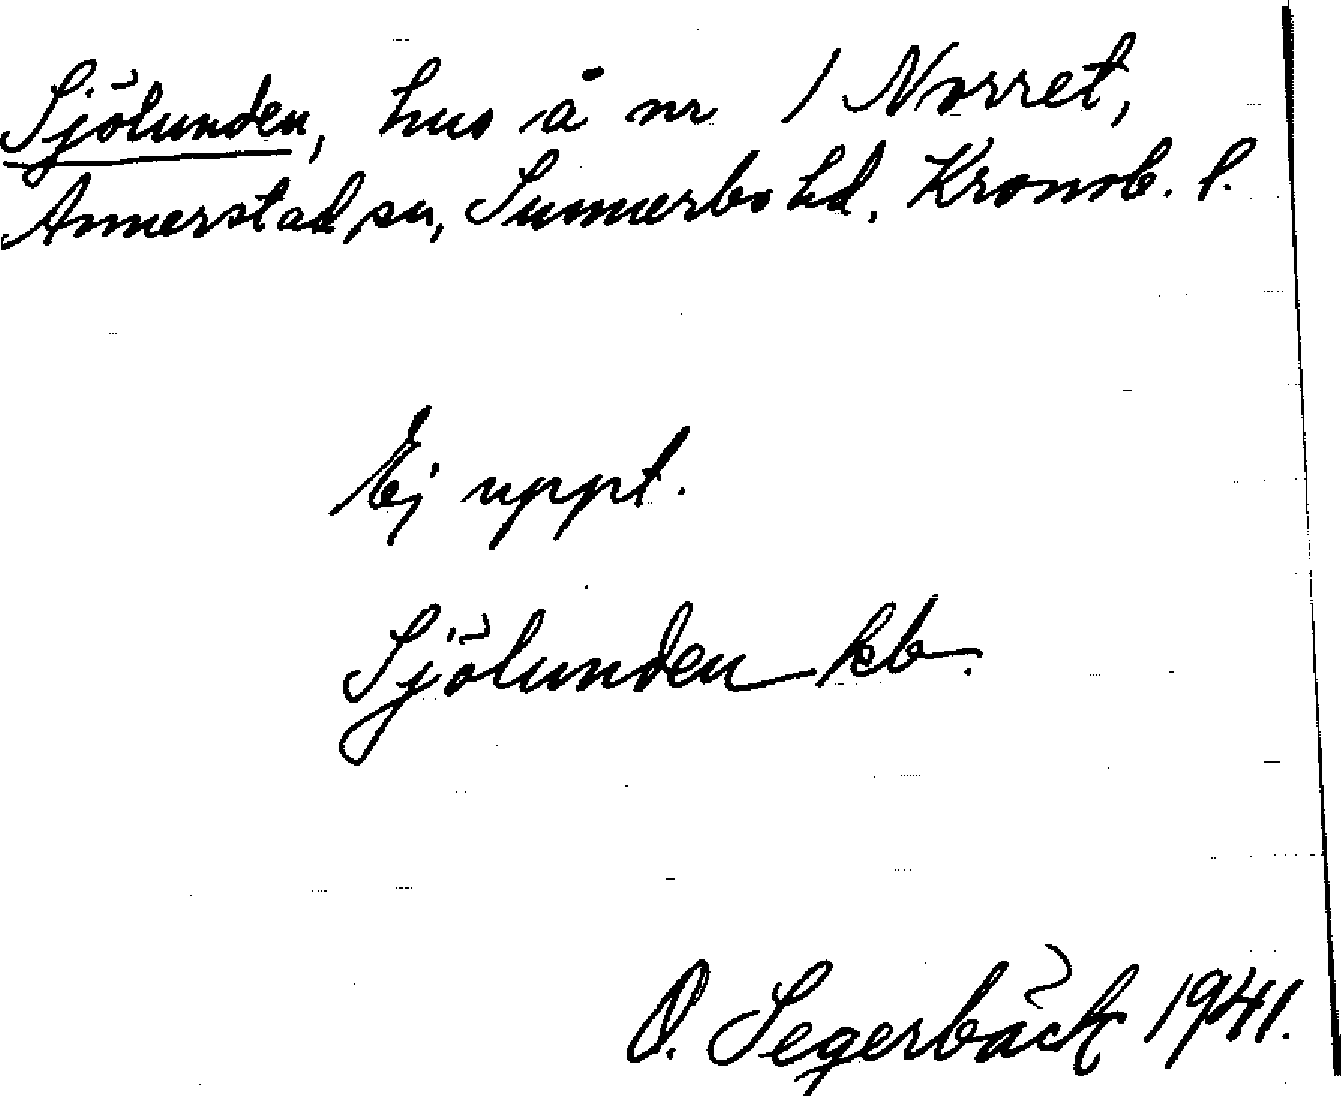 Sjölunden, hus å nr 1 Norret,
Annerstad sn, Sunnerbo hd, Kronob. l.
Ej uppt.
Sjölunden kb.
O. Segerbäck 1941.